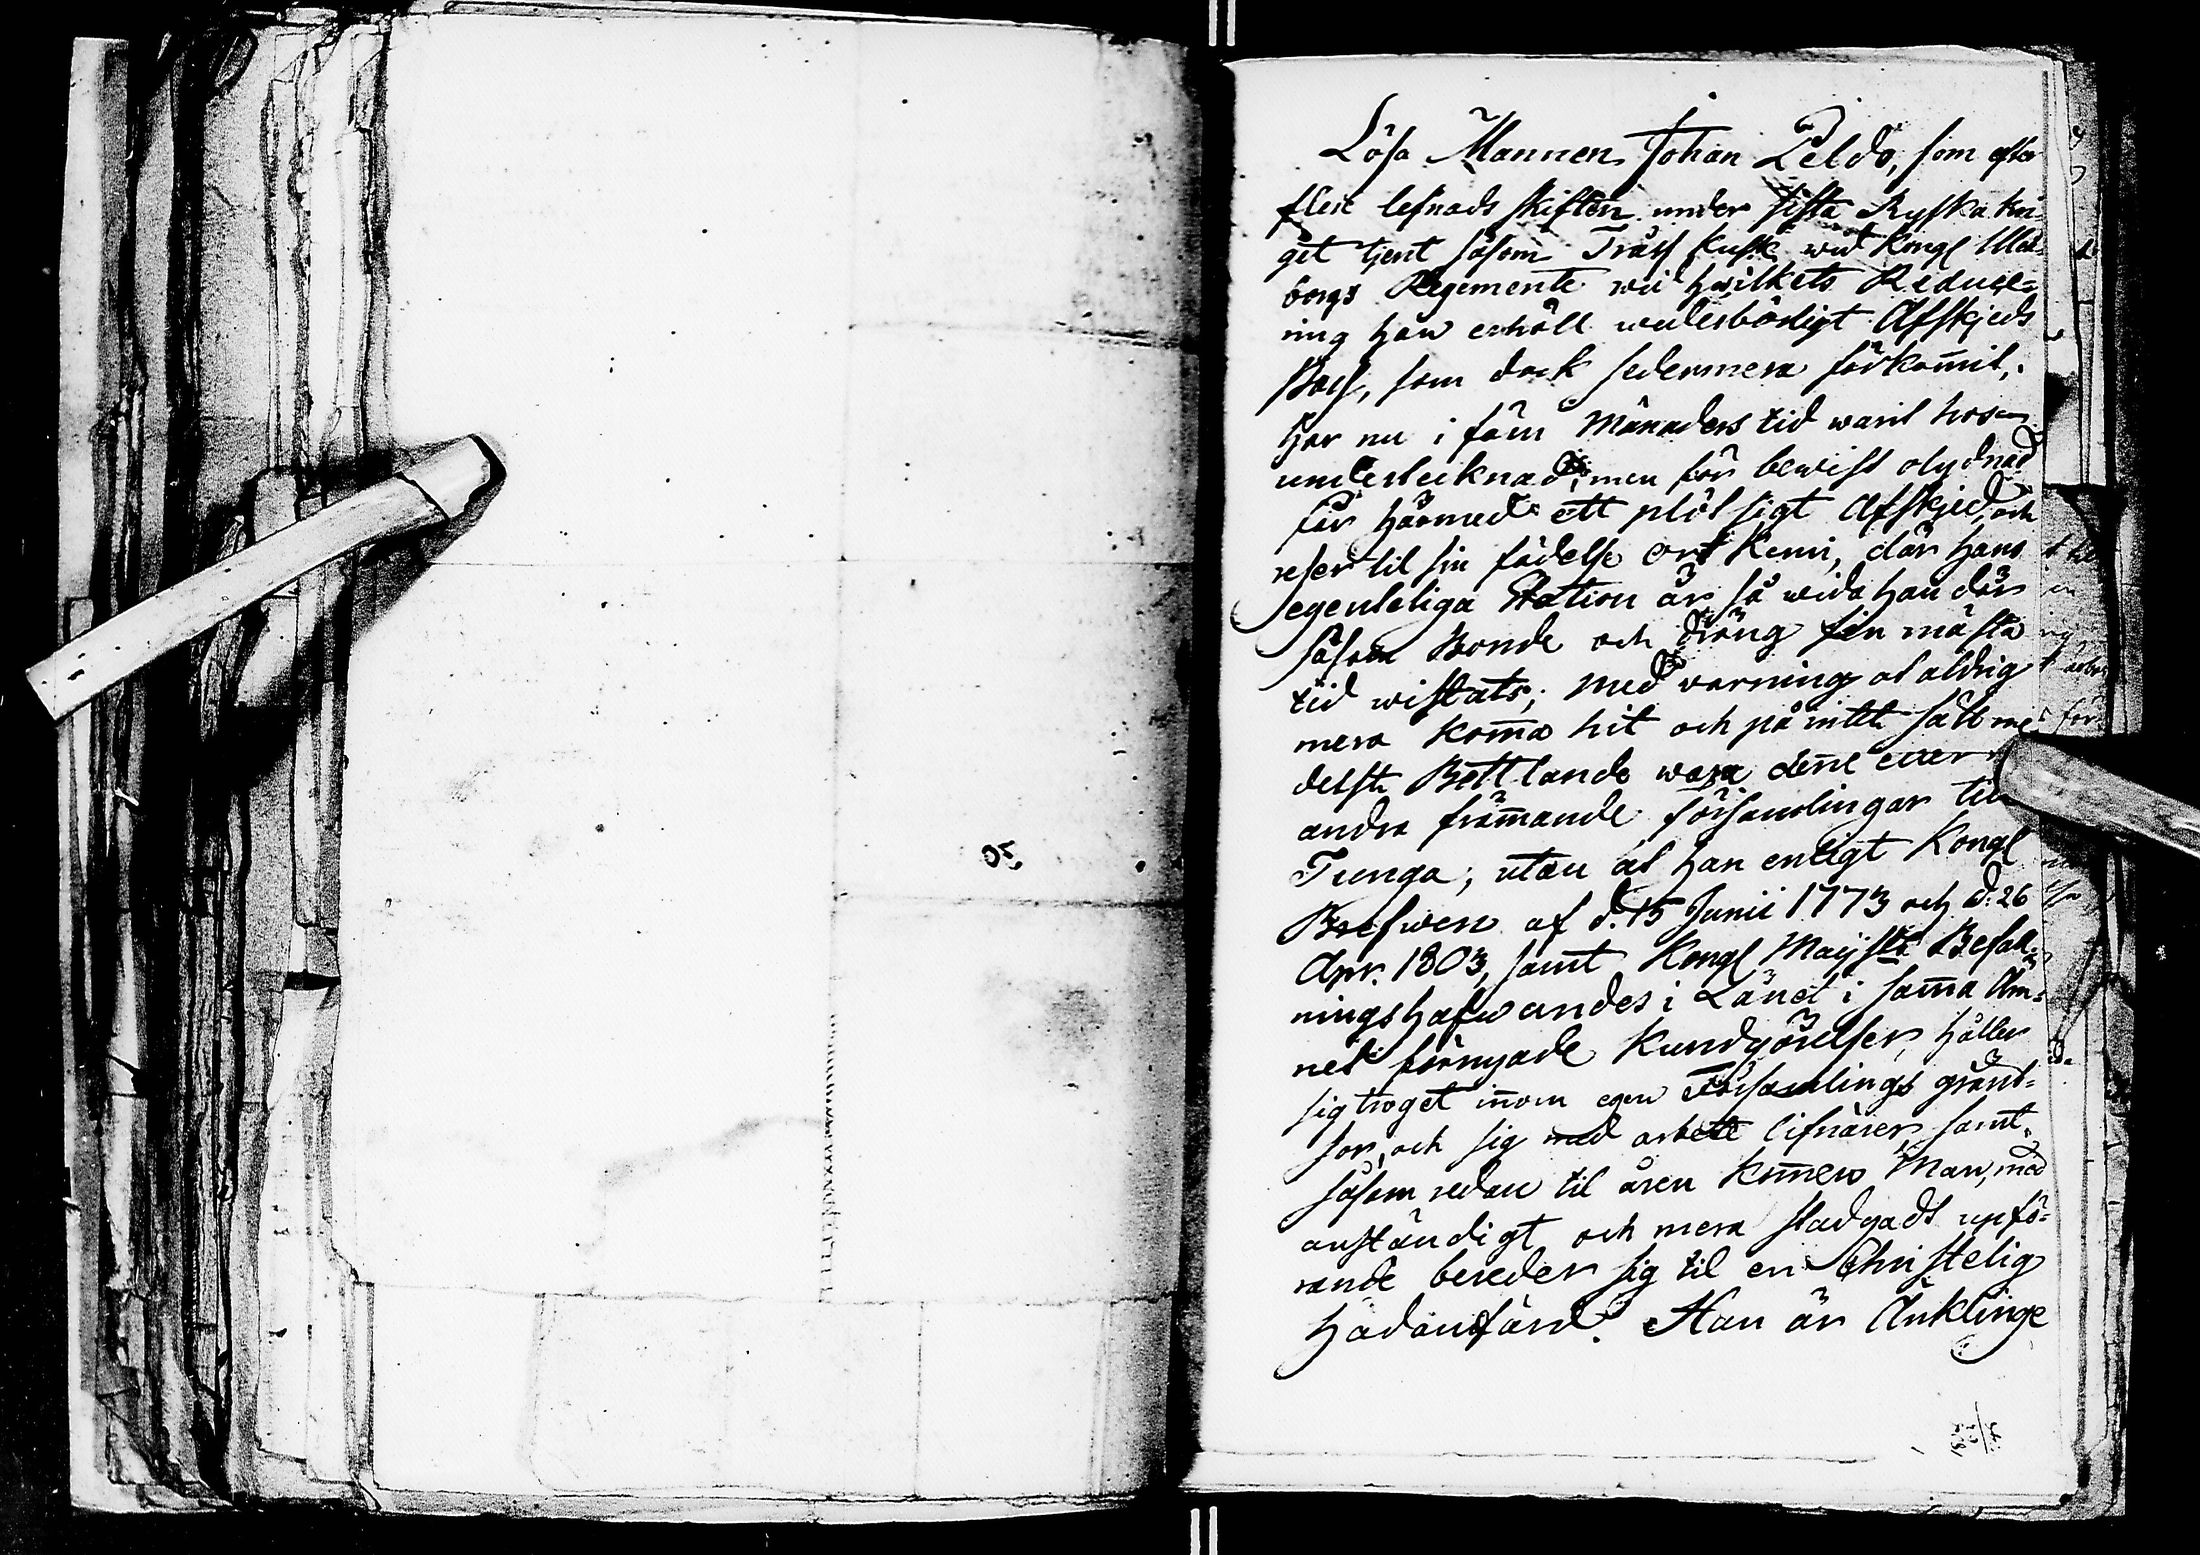 Lösa Mannen Johan Peldo, som efter
flere lefnads skiften under sista Ryska kri-
get tjent såsom Tråss kusk wid Kongl Ulå-
borgs Regemente wid hwilkets Reduce-
ring han erhöll wederbörligt Afskjeds
Pass, som dock sedermera förkom̅it,
har nu i fäm Månaders tid warit hos
undertecknad; men för bewist olydnad
får härmed ett plötsligt Afskjed, och
reser til sin födelse Ort Kemi, där hans
egenteliga Station är så wida han där
såsom Bonde och dräng sin mästa
tid wistats; med warning at aldrig
mera kom̅a hit och på intet sätt me-
delst Bettlande wara den̅e eller
andra främ̅ande församlingar til
Tunga; utan at han enligt Kongl
Brefwen af d. 15 Junii 1773 och d. 26
Apr. 1803, samt Kongl Maij:sts Befall-
ningshafwandes i Länet i sam̅a Äm-
net förnyade Kundgörelser, håller
sig troget in̅om egen Församlings gränt-
sor, och sig med arbete lifnärer, samt
såsom redan til åren kom̅en Man, med
anständigt och mera stadgadt upfö-
rande bereder sig til en Christelig
hädanfärd. Han är Änklinge